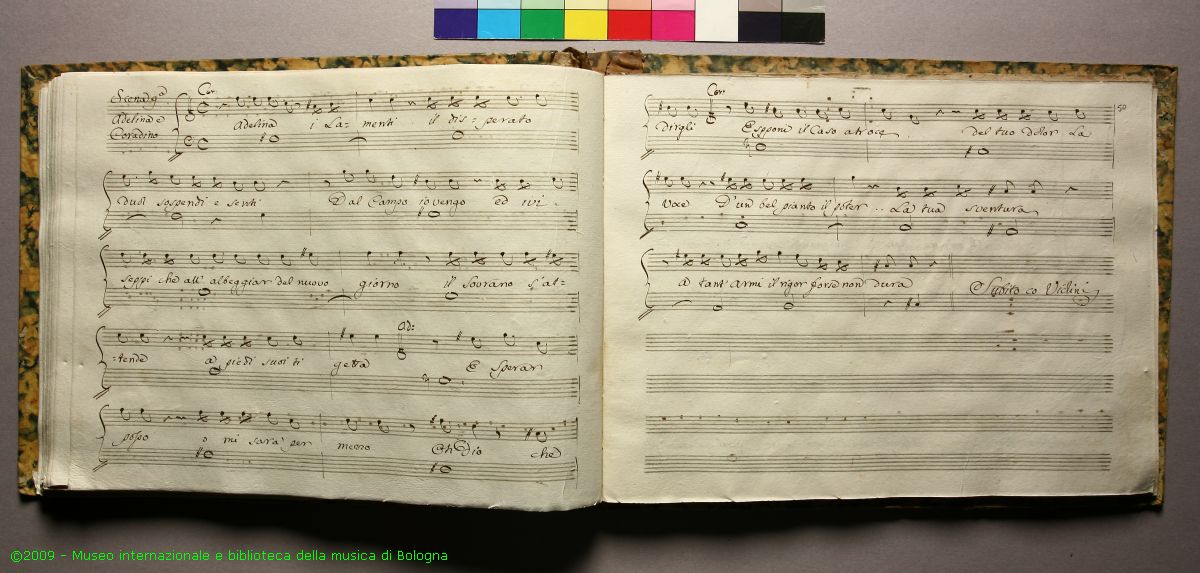 Scena 9ª
Adelina e
Coradino
Cor:
Adelina i La- menti il dis- perato
duol sospendi e senti Dal Campo io vengo ed ivi
seppi che all' albeggiar del nuovo giorno il Sovrano s'at-
-tende a piedi suoi ti getta
Ad:
E sperar
posso o mi sarà per meno Oh Dio che
50
dirgli
Cor:
Esponi il Caso atroce del tuo dolor La
Voce D'un bel pianto il poter .. La tua sventura
A tant'armi il rigor forse non dura
Subito co Violini
©2009 - Museo internazionale e biblioteca della musica di Bologna